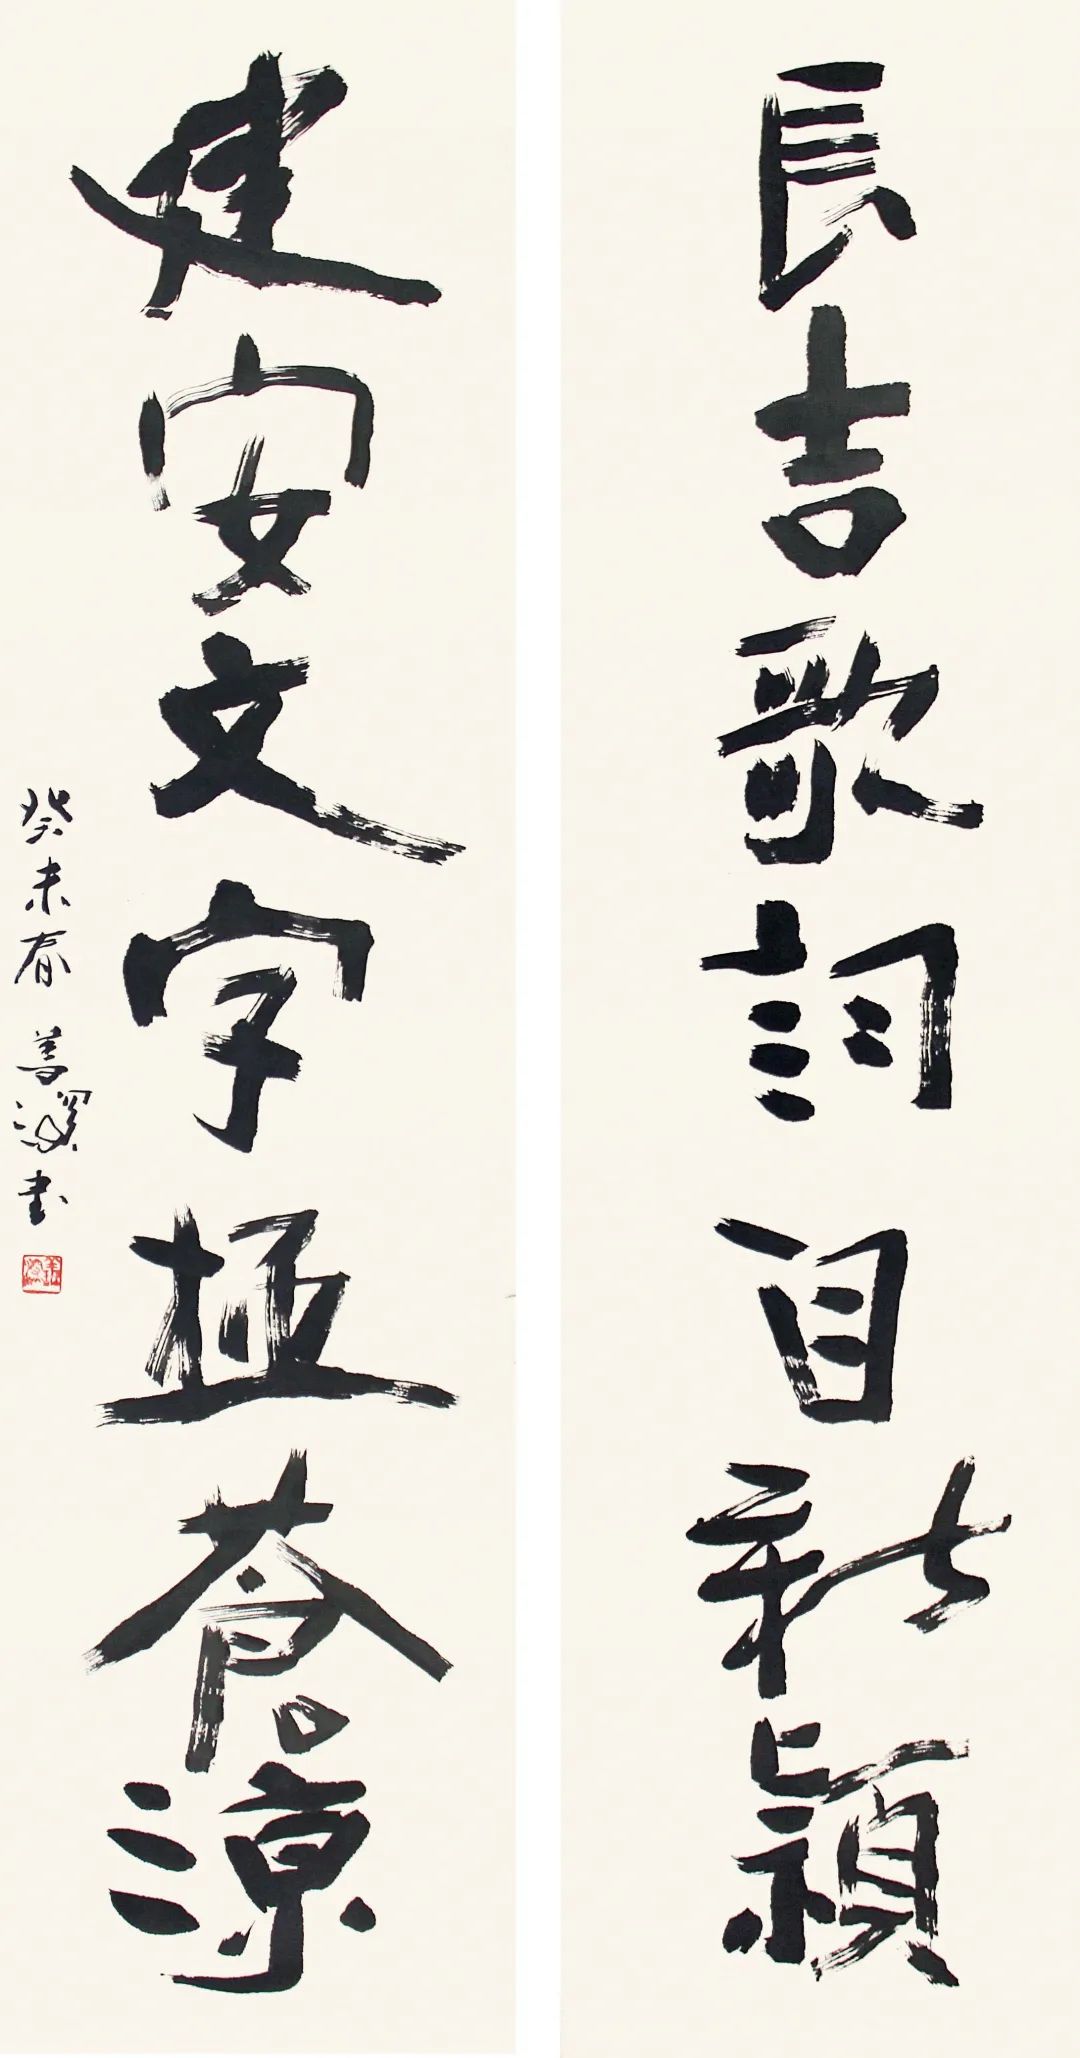 長吉歌詞自新穎
建安文字極蒼涼
癸未春善溪書